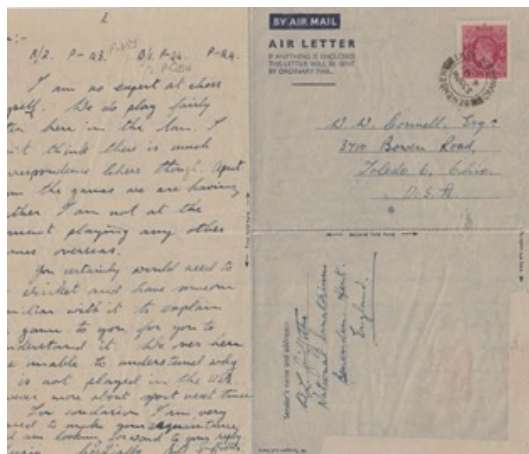 2
B/2. P-Q3. P-Q4.
I am no expert at chess
myself. We do play fairly
here in the San. I
think there is much
Chess though. Apart
the games we are having
I am not at the
playing any other
overseas.
You certainly would need to
cricket and have someone
with it to explain
game to you for you to
understand it. We over here
unable to understand why
is not played in the U.S.A.
more about sport next time.
In conclusion I am very
to make your acquaintance
am looking forward to your reply
BY AIR MAIL
AIR LETTER
IF ANYTHING IS ENCLOSED
THIS LETTER WILL BE SENT
BY ORDINARY MAIL.
W. W. Connell, Esq.
3700 Bowen Road,
Toledo 6, Ohio.
U.S.A.
Second fold here
Sender's name and address:-
National Sanatorium
Benenden, Kent.
England.